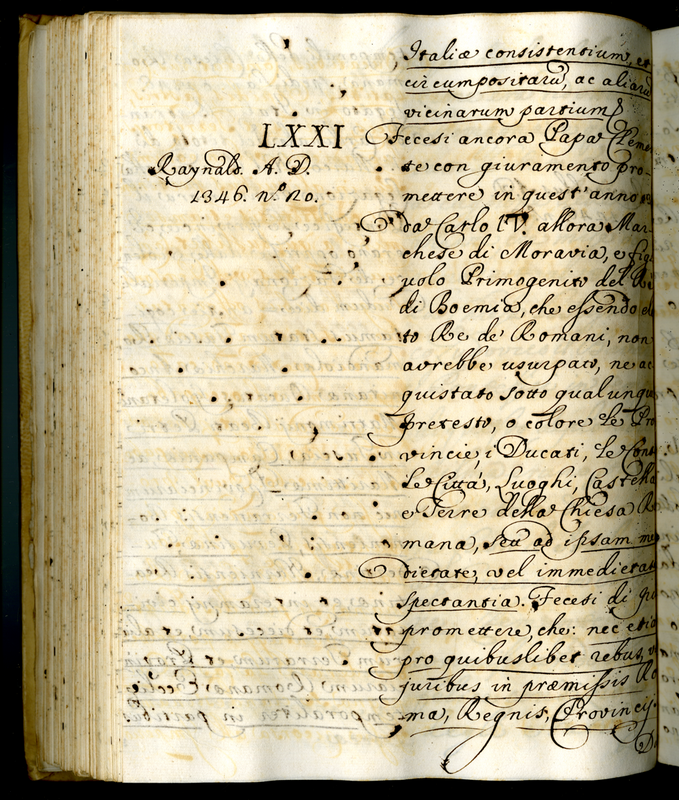 Italiæ consistentium, et
circumpositarū, ac aliarū
vicinarum partium
LXXI
Raynald. A. D.
1346. nº 20.
Fecesi ancora Papa Cleme-
te con giuramento pro-
mettere in quest' anno
da Carlo IV. allora Mar-
chese di Moravia, e figli
uolo Primogenito del Re
di Boemia, che essendo elet
to Re de Romani, non
avrebbe usurpato, ne ac
quistato sotto qualunque
pretesto, o colore le Pro
vincie, i Ducati, le Cont
le Città, Luoghi, Castella
e Terre della Chiesa Ro
mana, seu ad ipsam me
dietate, vel immediate
spectantia. Fecesi di
promettere, che: nec etia
pro quibuslibet rebus,
juribus in præmissis Ro
ma, Regnis, Provincijs